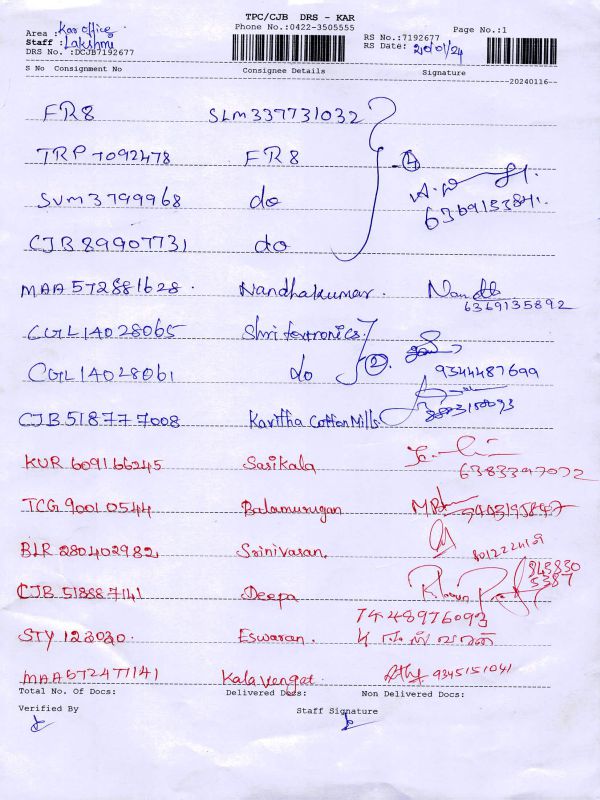 TPC/CJB DRS - KAR
Phone No.:0422-3505555
Page No.:1
Area : Kar office
Staff : Lakshmi
DRS No. :DCJB7192677
RS No.:7192677
RS Date: 20/01/24
S No Consignment No Consignee Details Signature
20240116
FR8 SLM337731032
TRP 7092478 FR8 4
SVM3799968 do
6369153841.
CJB 89907731 do
MAA 572881628. Nandhakumar.
6369135892
CGL14028065 Shri textronics.
CGL14028061 do 2 9344487699
CJB 518777008 Kavitha Cotton Mills.
KUR 609166245 Sasikala
6383397072
TCG 90010544 Balamurugan
BLR 280402982 Srinivasan.
CJB 518887141 Deepa
7448976093
STY 123030. Eswaran. ஈஸ்வரன்
MAA572477141 Kalavengat. 9345151041
Total No. Of Docs: Delivered Docs: Non Delivered Docs:
Verified By Staff Signature